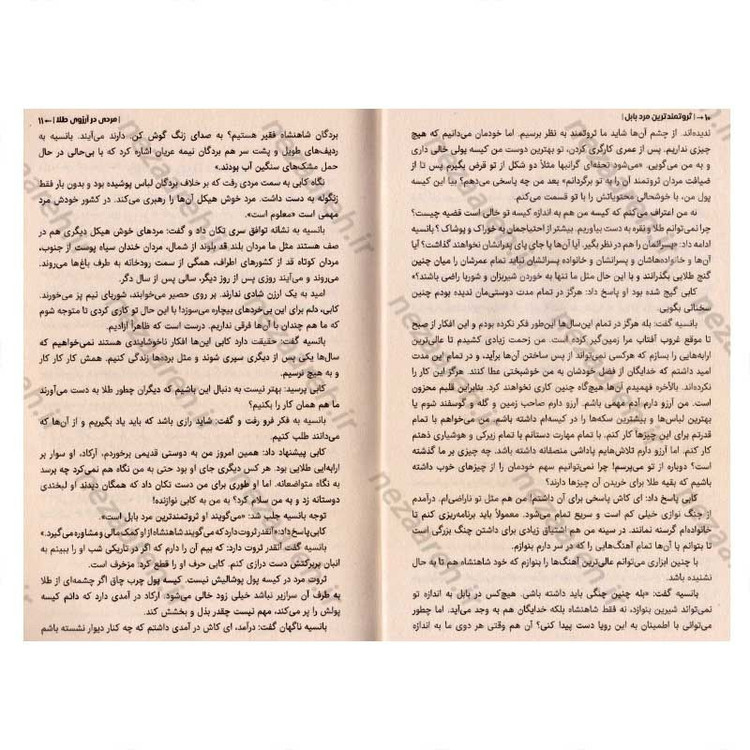 ۱۰ | ثروتمندترین مرد بابل |
ندیده‌اند. از چشم آن‌ها شاید ما ثروتمند به نظر برسیم. اما خودمان می‌دانیم که هیچ
چیزی نداریم. پس از عمری کارگری کردن، تو، بهترین دوست من کیسه پولی خالی داری
و به من می‌گویی. «می‌شود تحفه‌ای گرانبها مثلاً دو شکل از تو قرض بگیرم پس تا از
ضیافت مردان ثروتمند آن را به تو برگردانم» بعد من چه پاسخی می‌دهم؟ بیا این کیسه
پول من، با خوشحالی محتویاتش را با تو قسمت می‌کنم.
نه من اعتراف می‌کنم که کیسه من هم به اندازه کیسه تو خالی است قضیه چیست؟
چرا نمی‌توانم طلا و نقره به دست بیاوریم. بیشتر از احتیاجمان به خوراک و پوشاک؟ بانسیه
ادامه داد: «پسرانمان را هم در نظر بگیر. آیا آن‌ها پا جای پای پدرانشان نخواهند گذاشت؟ آیا
آن‌ها و خانواده‌هاشان و پسرانشان و خانواده پسرانشان نباید تمام عمرشان را میان چنین
گنج طلایی بگذرانند و با این حال مثل ما تنها به خوردن شیربزان و شوربا راضی باشند؟»
کابی گیج شده بود او پاسخ داد: هرگز در تمام مدت دوستی‌مان ندیده بودم چنین
سخنانی بگویی.
بانسیه گفت: بله هرگز در تمام این‌سال‌ها این‌طور فکر نکرده بودم و این افکار از صبح
تا موقع غروب آفتاب مرا زمین‌گیر کرده است. من زحمت زیادی کشیدم تا عالی‌ترین
ارابه‌هایی را بسازم که هرکسی نمی‌تواند از پس ساختن آن‌ها برآید، و در تمام این مدت
امید داشتم که خدایگان از فضل خودشان به من خوشبختی عطا کنند. هرگز این کار را
نکرده‌اند. بالأخره فهمیدم آن‌ها هیچ‌گاه چنین کاری نخواهند کرد. بنابراین قلبم محزون
است. من آرزو دارم آدم مهمی باشم. آرزو دارم صاحب زمین و گله و گوسفند شوم یا
بهترین لباس‌ها و بیشترین سکه‌ها را در کیسه‌ام داشته باشم. من می‌خواهم با تمام
قدرتم برای این چیزها کار کنم. با تمام مهارت دستانم با تمام زیرکی و هوشیاری ذهنم
کار کنم. اما آرزو دارم تلاش‌هایم پاداشی منصفانه داشته باشد. چه چیزی بر ما گذشته
است؟ دوباره از تو می‌پرسم! چرا نمی‌توانیم سهم خودمان را از چیزهای خوب داشته
باشیم که بقیه طلا برای خریدن آن چیزها دارند؟
کابی پاسخ داد: ای کاش پاسخی برای آن داشتم! من هم مثل تو ناراضی‌ام. درآمدم
از چنگ نوازی خیلی کم است و سریع تمام می‌شود. معمولاً باید برنامه‌ریزی کنم تا
خانواده‌ام گرسنه نمانند. در سینه من هم اشتیاق زیادی برای داشتن چنگ بزرگی است
تا بتوانم با آن‌ها تمام آهنگ‌هایی را که در سر دارم بنوازم.
با چنین ابزاری می‌توانم عالی‌ترین آهنگ‌ها را بنوازم که خود شاهنشاه هم تا به حال
نشنیده باشد.
بانسیه گفت: «بله چنین چنگی باید داشته باشی. هیچ‌کس در بابل به اندازه تو
نمی‌تواند شیرین بنوازد، نه فقط شاهنشاه بلکه خدایگان هم به وجد می‌آید. اما چطور
می‌توانی با اطمینان به این رویا دست پیدا کنی؟ آن هم وقتی هر دوی ما به اندازه
| مردی در آرزوی طلا | ۱۱
بردگان شاهنشاه فقیر هستیم؟ به صدای زنگ گوش کن. دارند می‌آیند. بانسیه به
ردیف‌های طویل و پشت سر هم بردگان نیمه عریان اشاره کرد که با بی‌حالی در حال
حمل مشک‌های سنگین آب بودند.»
نگاه کابی به سمت مردی رفت که بر خلاف بردگان لباس پوشیده بود و بدون بار فقط
زنگوله به دست داشت. مرد خوش هیکل آن‌ها را رهبری می‌کند. در کشور خودش مرد
مهمی است «معلوم است».
بانسیه به نشانه توافق سری تکان داد و گفت: مردهای خوش هیکل دیگری هم در
صف هستند مثل ما مردان بلند قد بلوند از شمال، مردان خندان سیاه پوست از جنوب،
مردان کوتاه قد از کشورهای اطراف، همگی از سمت رودخانه به طرف باغ‌ها می‌روند.
می‌روند و می‌آیند روزی پس از روز دیگر، سالی پس از سال دگر.
امید به یک ارزن شادی ندارند. بر روی حصیر می‌خوابند، شوربای نیم پز می‌خورند.
کابی، دلم برای این بی‌خردهای بیچاره می‌سوزد! با این حال تو کاری کردی تا متوجه شوم
که ما هم چندان با آن‌ها فرقی نداریم. درست است که ظاهراً آزادیم.
بانسیه گفت: حقیقت دارد کابی این‌ها افکار ناخوشایندی هستند نمی‌خواهیم که
سال‌ها یکی پس از دیگری سپری شوند و مثل برده‌ها زندگی کنیم. همش کار کار کار
و به هیچ نرسیم.
کابی پرسید: بهتر نیست به دنبال این باشیم که دیگران چطور طلا به دست می‌آورند
ما هم همان کار را بکنیم؟
بانسیه به فکر فرو رفت و گفت: شاید رازی باشد که باید یاد بگیریم و از آن‌ها که
می‌دانند طلب کنیم.
کابی پیشنهاد داد: همین امروز من به دوستی قدیمی برخوردم، آرکاد، او سوار بر
ارابه‌ایی طلایی بود. هر کس دیگری جای او بود حتی به من نگاه هم نمی‌کرد چه برسد
به نگاه متواضعانه. اما او طوری برای من دست تکان داد که همگان دیدند او لبخندی
دوستانه زد و به من سلام کرد؟ به من به کابی نوازنده!
توجه بانسیه جلب شد: «می‌گویند او ثروتمندترین مرد بابل است».
کابی پاسخ داد: «آنقدر ثروت دارد که می‌گویند شاهنشاه از او کمک مالی و مشاوره می‌گیرد.»
بانسیه گفت آنقدر ثروت دارد: که بیم آن را دارم که اگر در تاریکی شب او را ببینم به
انبان پربرکتش دست درازی کنم. کابی حرف او را قطع کرد: مزخرف است.
ثروت مرد در کیسه پول پوشالیش نیست. کیسه پول چرب چاق اگر چشمه‌ای از طلا
به طرف آن سرازیر نباشد خیلی زود خالی می‌شود. آرکاد در آمدی دارد که دائم کیسه
پولش را پر می‌کند، مهم نیست چقدر بذل و بخشش کند.
بانسیه ناگهان گفت: درآمد، ای کاش در آمدی داشتم که چه کنار دیوار نشسته باشم
nezaareh.ir